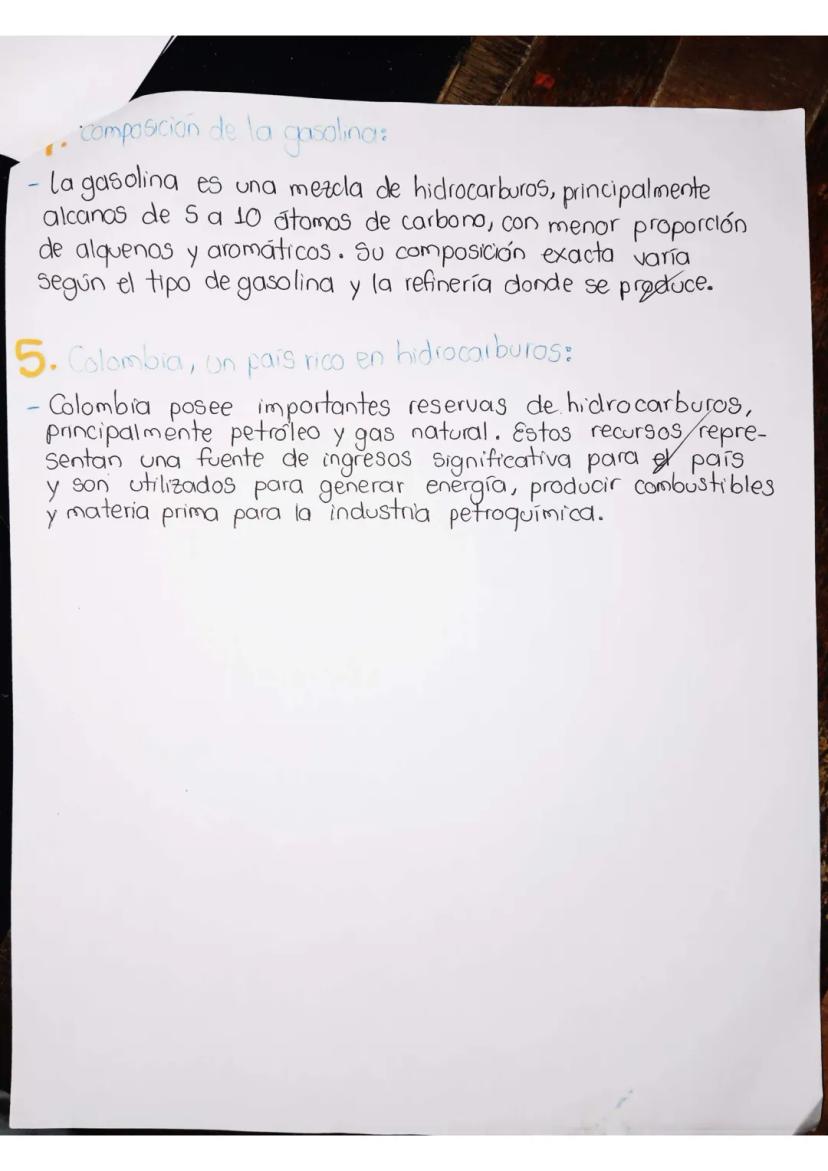 . composición de la gasolina:
- La gasolina es una mezcla de hidrocarburos, principalmente
alcanos de 5 a 10 átomos de carbono, con menor proporción
de alquenos y aromáticos. Su composición exacta varía
según el tipo de gasolina y la refinería donde se produce.
5. Colombia, un país rico en hidrocarburos:
- Colombia posee importantes reservas de hidrocarburos,
principalmente petróleo y gas natural. Estos recursos repre-
sentan una fuente de ingresos significativa para el país
y son utilizados para generar energía, producir combustibles
y materia prima para la industria petroquímica.